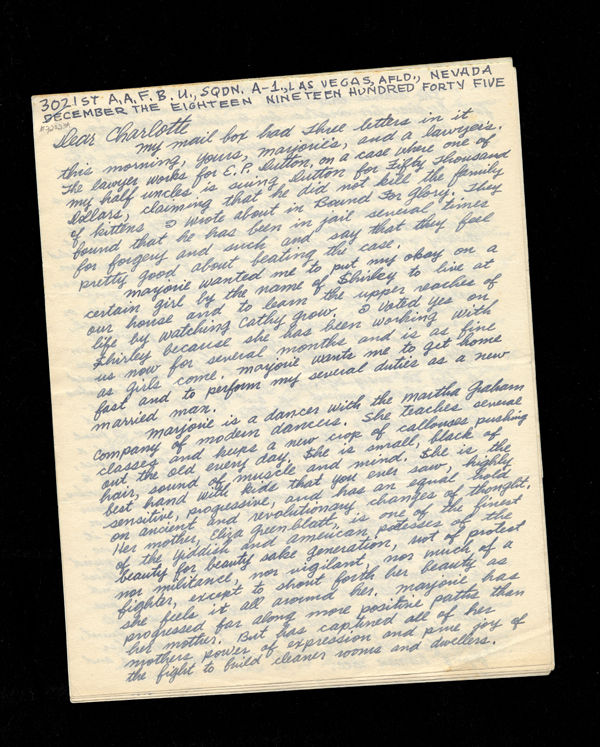 3021ST A.A.F.B.U., SQDN. A-1., LAS VEGAS, AFLD., NEVADA
DECEMBER THE EIGHTEEN NINETEEN HUNDRED FORTY FIVE
Dear Charlotte
My mail box had three letters in it
this morning, yours, marjorie's, and a lawyer's.
The lawyer works for E.P. Dutton, on a case where one of
my half uncles is suing Dutton for Fifty Thousand
Dollars, claiming that he did not kill the family
of kittens I wrote about in Bound For Glory. They
found that he has been in jail several times
for forgery and such and say that they feel
pretty good about beating the case.
Marjorie wanted me to put my okay on a
certain girl by the name of Shirley to live at
our house and to learn the upper reaches of
life by watching Cathy grow. I voted yes on
Shirley because she has been working with
us now for several months and is as fine
as girls come. Marjorie wants me to get home
fast and to perform my several duties as a new
married man.
Marjorie is a dancer with the Martha Graham
Company of modern dancers. She teaches several
classes and keeps a new crop of callouses pushing
out the old every day. She is small, black of
hair, sound of muscle and mind. She is the
best hand with kids that you ever saw, highly
sensitive, progressive, and has an equal hold
on ancient and revolutionary changes of thought.
Her mother, Eliza Greenblatt, is one of the finest
of the Yiddish and american poetesses of the
beauty for beauty sake generation, not of protest
nor militance, nor vigilant, nor much of a
fighter, except to shout forth her beauty as
she feels it all around her. Marjorie has
progressed far along more positive paths than
her mother. But has captured all of her
mothers power of expression and pure joy of
the fight to build cleaner rooms and dwellers.